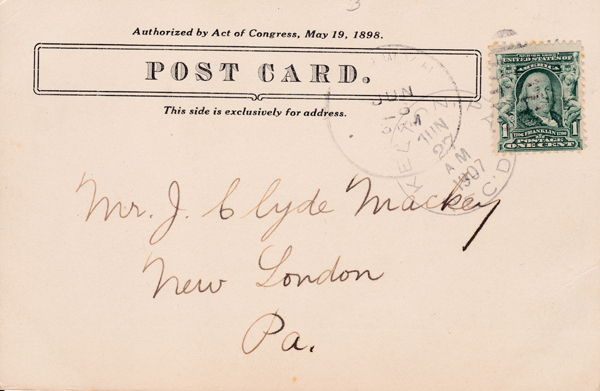 3
Authorized by Act of Congress, May 19, 1898.
POST CARD.
This side is exclusively for address.
JUN
M
KELTON
JUN
27
AM
1907
UNITED STATES OF
AMERICA
1 FRANKLIN 1
POSTAGE
ONE CENT
Mr. J. Clyde Mackey
New London
Pa.